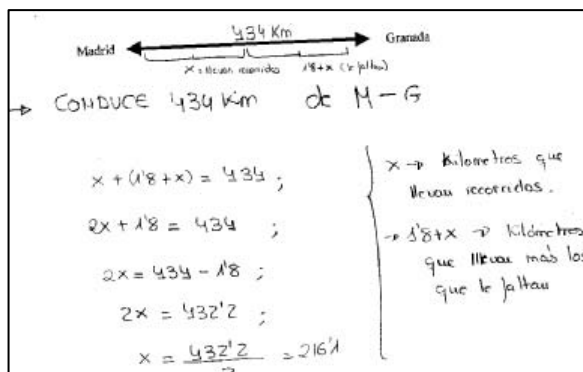 434 Km
Madrid Granada
x = llevan recorridos 1'8+x (le faltan)
→ CONDUCE 434 Km de M - G
x + (1'8+x) = 434 ;
2x + 1'8 = 434 ;
2x = 434 - 1'8 ;
2x = 432'2 ;
x = 432'2 = 216'1
x → Kilometros que
llevan recorridos.
→ 1'8+x → Kilómetros
que llevan más los
que le faltan